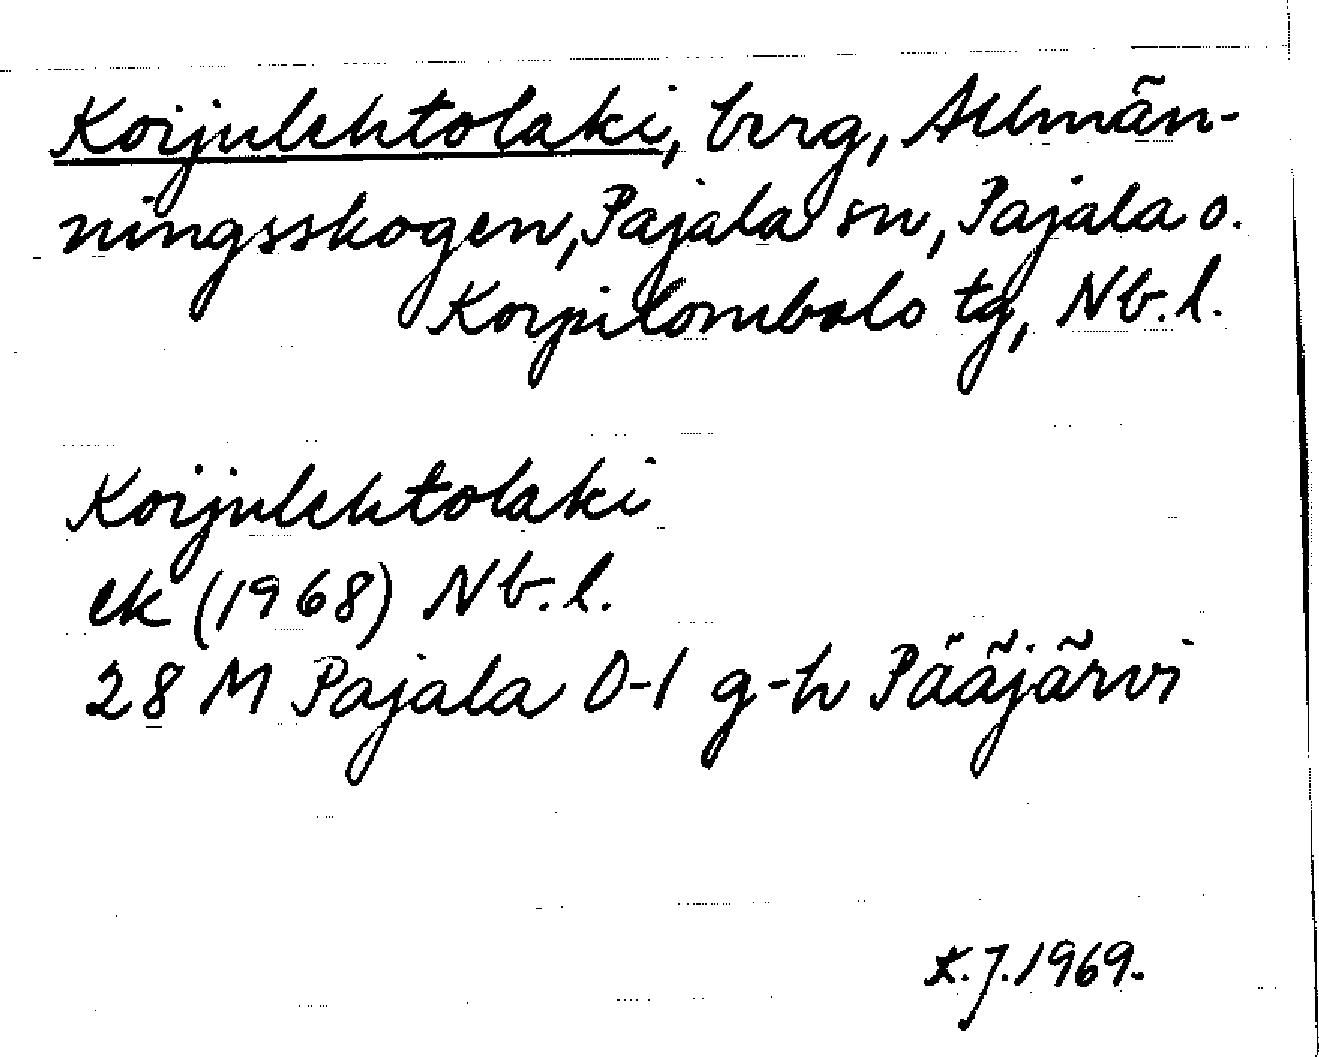 Koijulehtolaki, berg, Allmän-
ningsskogen, Pajala sn, Pajala o.
Korpilombolo tg, Nb. l.
Koijulehtolaki
ek (1968) Nb. l.
28 M Pajala 0-1 g-h Pääjärvi
K. J. 1969.